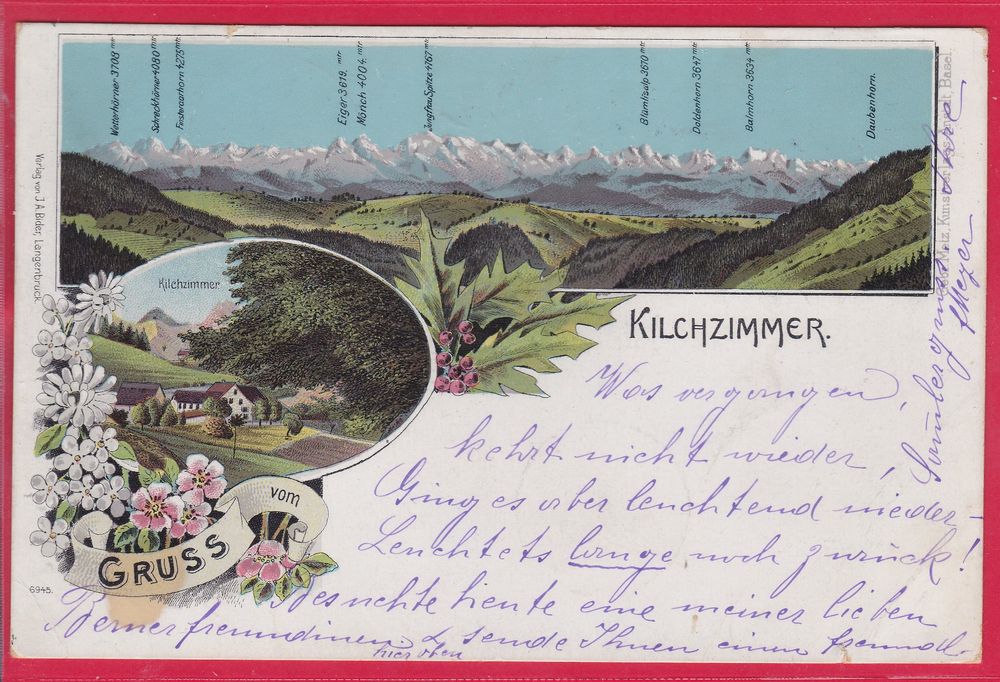 Wetterhörner 3708 mtr.
Schreckhörner 4080 mtr.
Finsteraarhorn 4275 mtr.
Eiger 3619. mtr.
Mönch 4004. mtr.
Jungfrau Spitze 4167 mtr.
Blümlisalp 3670 mtr.
Doldenhorn 3647 mtr.
Balmhorn 3634 mtr.
Daubenhorn.
Verlag von J. A. Bider, Langenbruck.
Metz, Kunstverlagsanstalt Basel.
Kilchzimmer
KILCHZIMMER.
GRUSS vom
6945.
Was vergangen,
kehrt nicht wieder,
Ging es aber leuchtend nieder –
Leuchtets lange noch zurück!
Besuchte heute eine meiner lieben
Bernerfreundinen & sende Ihnen einen freundl.
hier oben
Meyer